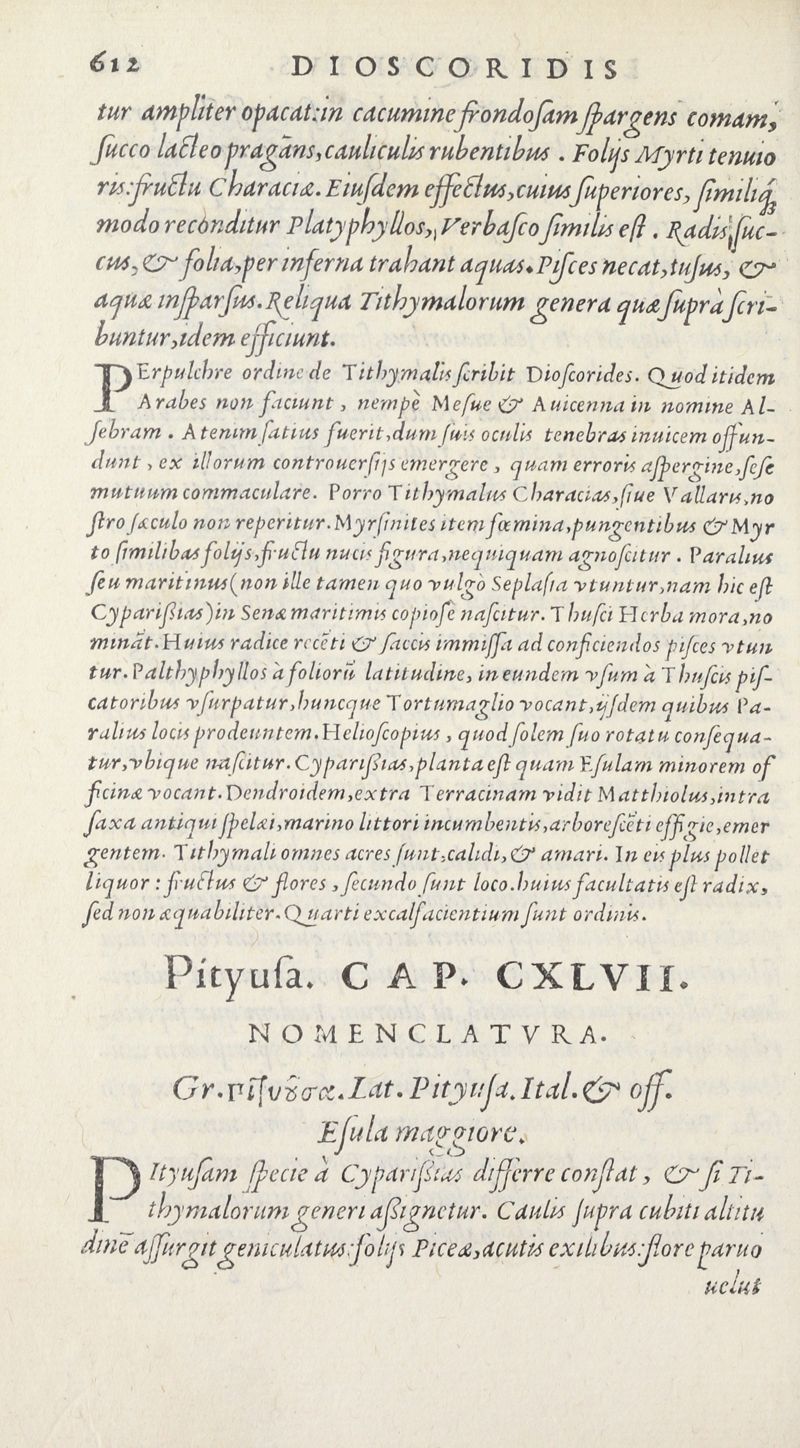 612 DIOSCORIDIS
tur ampliter opacat:in cacumine frondoſam ſpargens comam,
ſucco lacteo prægãns,cauliculis rubentibus . Folijs Myrti tenuio
ris:fructu Characiæ. Eiuſdem effectus,cuius ſuperiores, ſimiliq́;
modo reconditur Platyphyllos, Verbaſco ſimilis eſt . Radis ſuc-
cus, & folia,per inferna trahant aquas. Piſces necat,tuſus, &
aquæ inſparſus. Reliqua Tithymalorum genera quæ ſuprà ſcri-
buntur,idem efficiunt.
PErpulchre ordine de Tithymalis ſcribit Dioſcorides. Quod itidem
Arabes non faciunt , nempè Meſue & Auicenna in nomine Al-
ſebram . Atenim ſatius fuerit,dum ſuis oculis tenebras inuicem offun-
dunt , ex illorum controuerſijs emergere , quam erroris aſpergine,ſeſe
mutuum commaculare. Porro Tithymalus Characias,ſiue Vallaris,no
ſtro ſæculo non reperitur. Myrſinites item fœmina,pungentibus & Myr
to ſimilibas folijs,fructu nucis figura,nequiquam agnoſcitur . Paralius
ſeu maritinus(non ille tamen quo vulgò Seplaſia vtuntur,nam hic eſt
Cypariſsias)in Senæ maritimis copioſe naſcitur. Thuſci Herba mora,no
minãt. Huius radice recẽti & faccis immiſſa ad conficiendos piſces vtun
tur. Palthyphyllos à foliorũ latitudine, in eundem vſum à Thuſcis piſ-
catoribus vſurpatur,huncque Tortumaglio vocant,ijſdem quibus Pa-
ralius locis prodeuntem. Helioſcopius , quod ſolem ſuo rotatu conſequa-
tur,vbique naſcitur. Cypariſsias,planta eſt quam Eſulam minorem of
ficinæ vocant. Dendroidem,extra Terracinam vidit Matthiolus,intra
ſaxa antiqui ſpelæi,marino littori incumbentis,arboreſcẽti effigie,emer
gentem. Tithymali omnes acres ſunt,calidi,& amari. In eis plus pollet
liquor : fructus & flores , ſecundo ſunt loco. huius facultatis eſt radix,
ſed non æquabiliter. Quarti excalfacientium ſunt ordinis.
Pityuſa. CAP. CXLVII.
NOMENCLATVRA.
Gr. Πιτυȣ͂σα. Lat. Pityuſa. Ital. & off.
Eſula maggiore.
PItyuſam ſpecie à Cypariſsias differre conſtat , & ſi Ti-
thymalorum generi aſsignetur. Caulis ſupra cubiti altitu
dinẽ aſſurgit geniculatus:folijs Piceæ,acutis exilibus:flore paruo
uelut